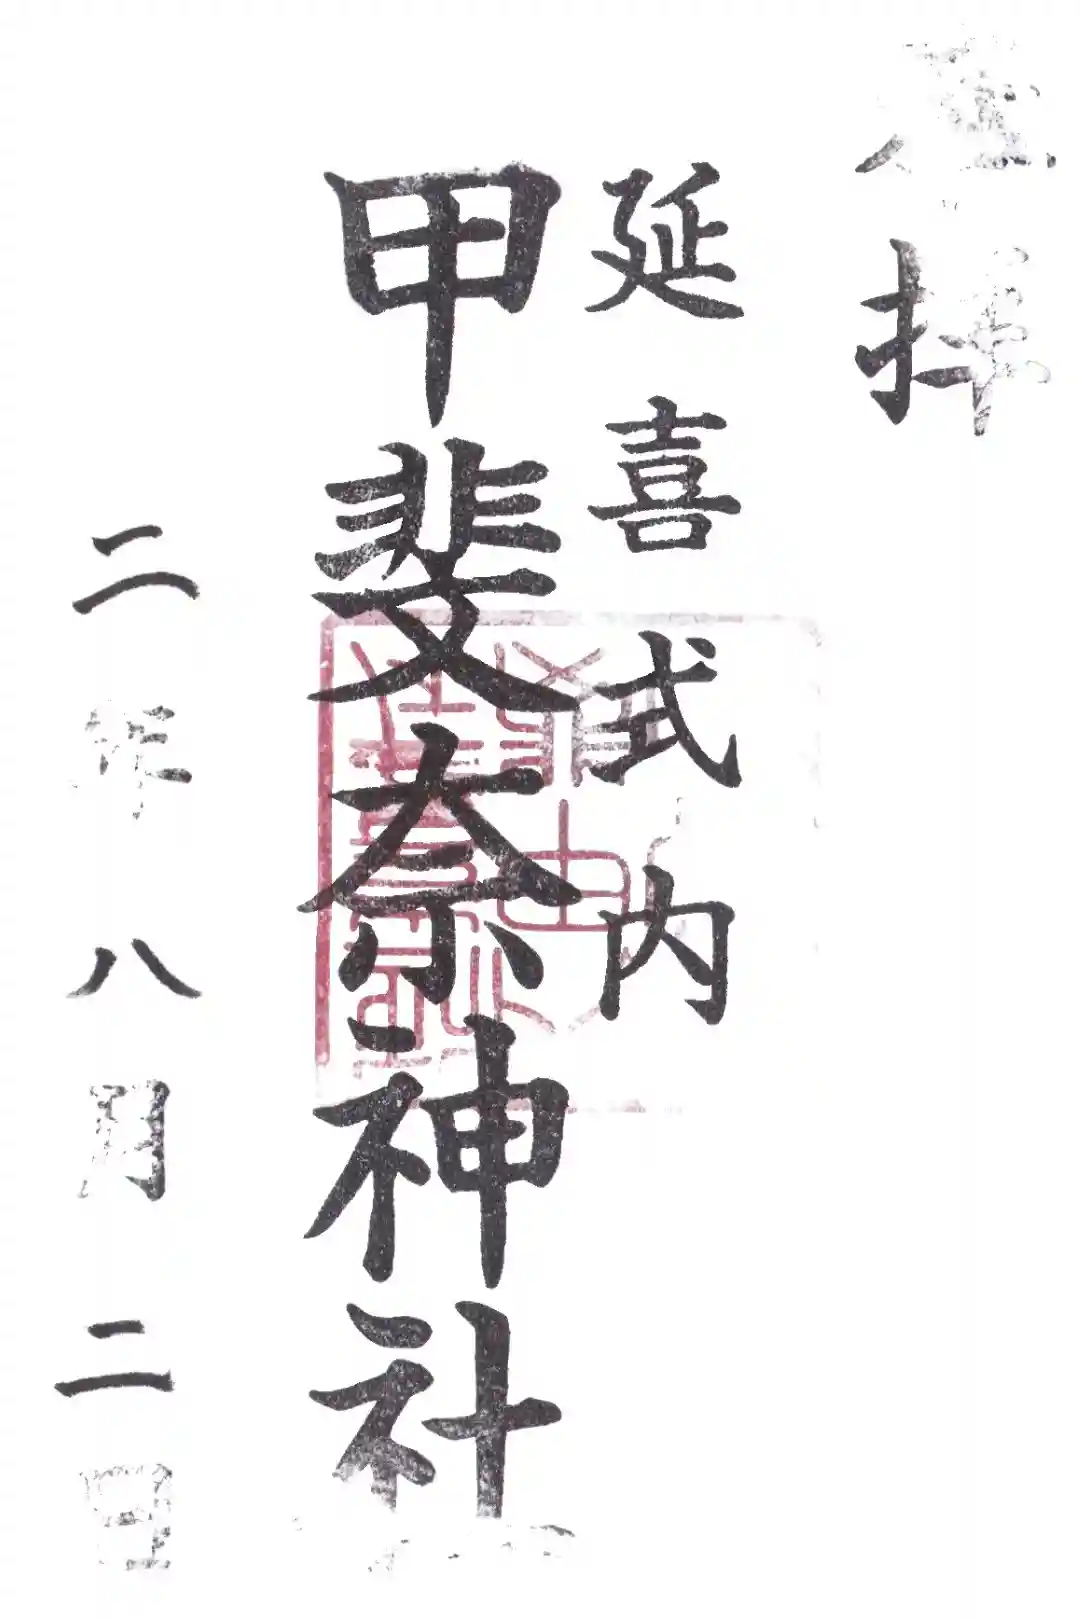 登拝
延喜式内
甲斐奈神社
二年八月二日